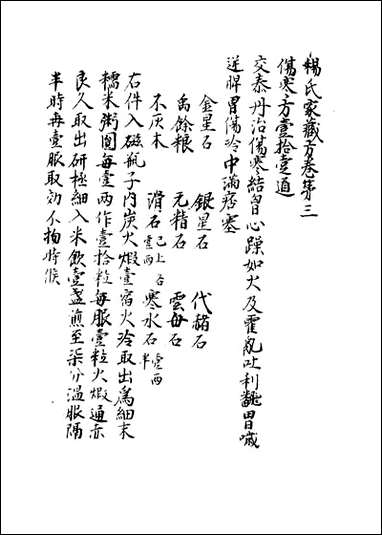 楊氏家藏方卷第三
傷寒方壹拾壹道
交泰丹治傷寒結胷心躁如火及霍亂吐利翻胃噦
逆脾胃傷冷中滿痞塞
金星石　銀星石　代赭石
禹餘粮　无精石　雲母石
不灰木　滑石已上各壹兩　寒水石壹兩半
右件入磁瓶子内炭火煅壹宿火冷取出爲細末
糯米粥圓每壹兩作壹拾粒每服壹粒火煅通赤
良久取出研極細入米飲壹盞煎至柒分温服隔
半時再壹服取効不拘時候